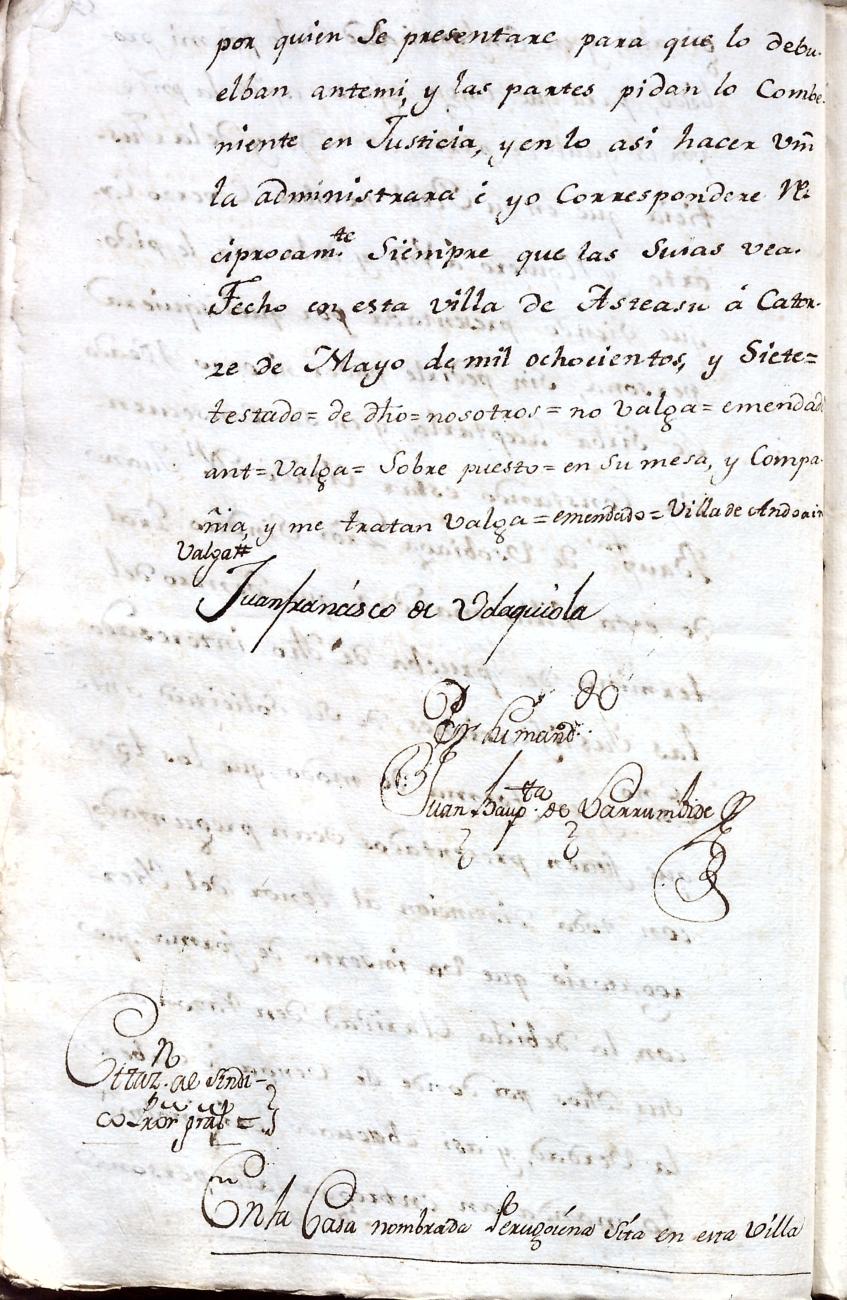 por quien se presentare para que lo debu-
elban antemi, y las partes pidan lo Combe-
niente en Justicia, y en lo asi hacer Vm̃
la administrara è yo Correspondere Re
ciprocam.te Siempre que las Suias vea.
Fecho en esta villa de Asteasu á Cator-
ze de Mayo de mil ochocientos, y Siete=
testado= de dho= nosotros= no Valga= emendado
ant= Valga= Sobre puesto= en su mesa, y Compa-
ñia, y me tratan Valga= emendado= Villa de Andoain
Valga#
Juan francisco de Udaquiola
Por su mand.do
Juan Baup.ta de Larrumbide
Cittaz.n al Sindi-
co Pror gral
En la Casa nombrada Perugorena Sita en esta Villa